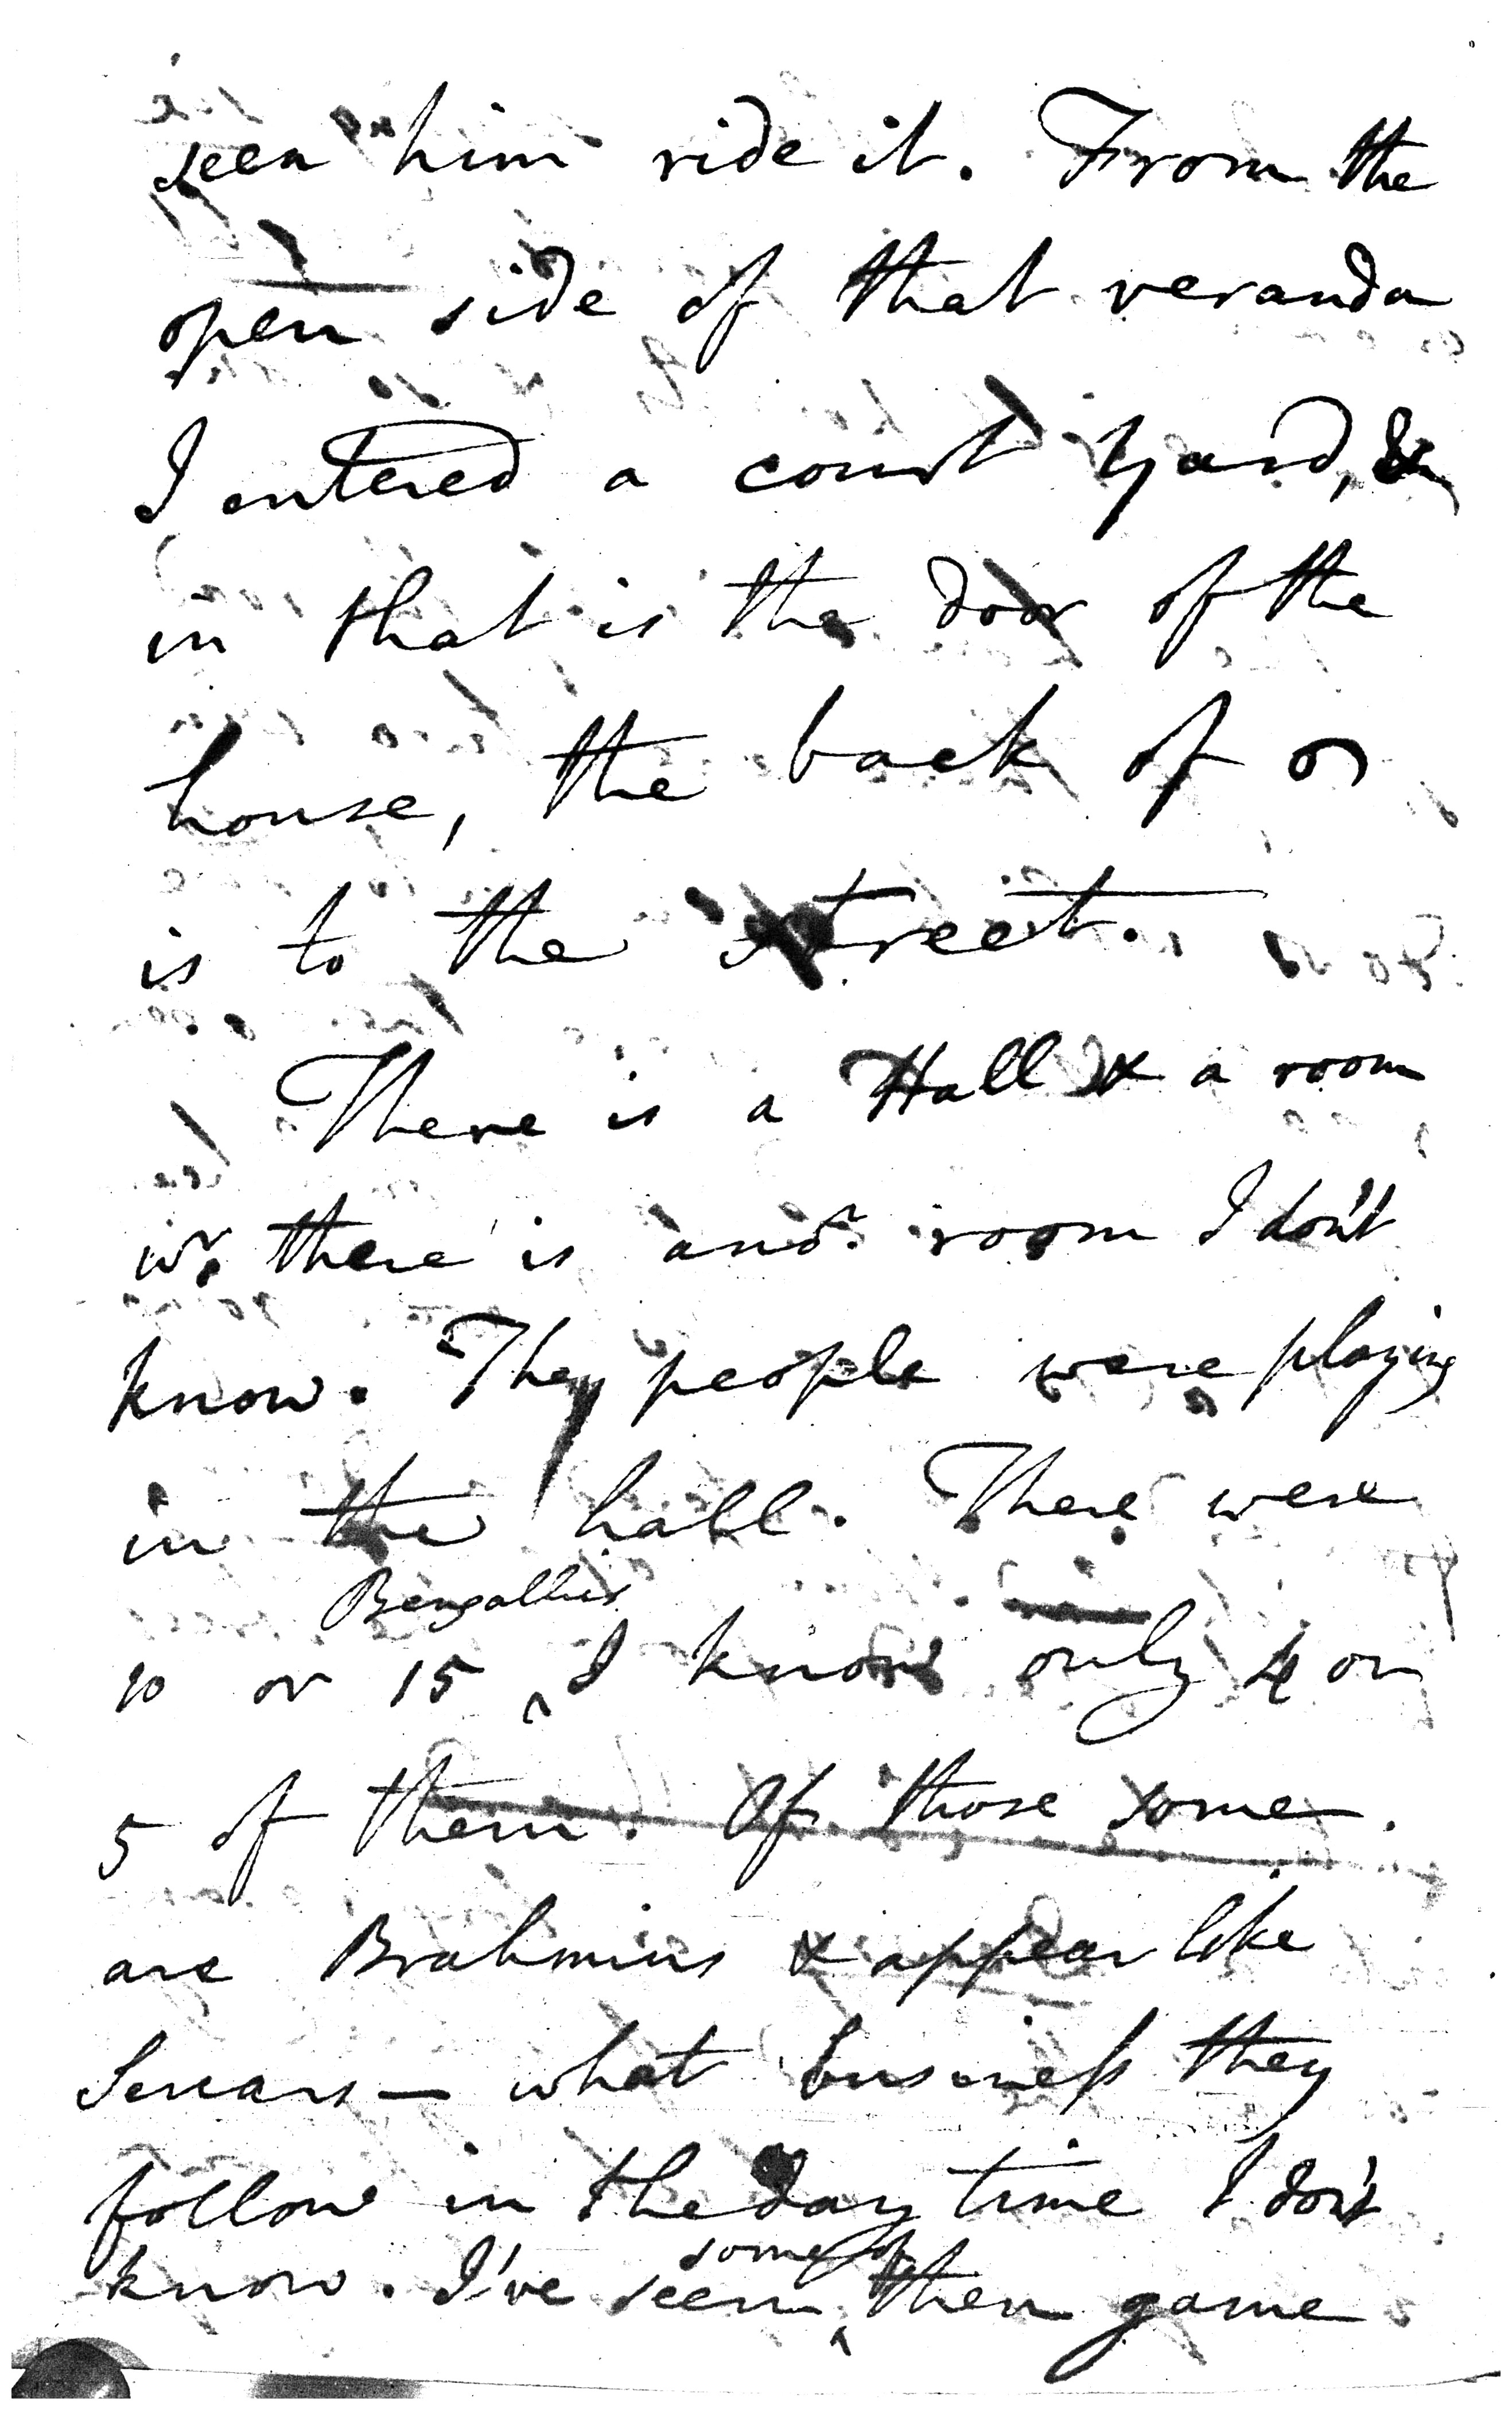 seen him ride it. From the
open side of that veranda
I entered a court yard, &
in that is the door of the
house, the back of
is to the street.
There is a Hall & a room
wr. there is anor. room I don't
know. The people were playing
in the hall. There were
Bengallies
10 or 15 ^ I know only 4 or
5 of them. Of those some
are Brahmins & appear like
Sircars - what business they
follow in the day time I don't
some of
know. I've seen ^ them game